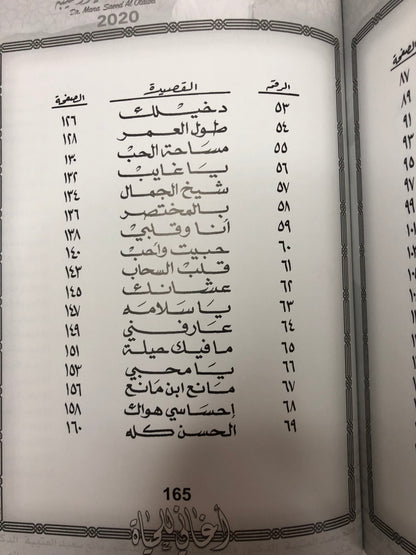 Dr. Mana Saeed Al Otaiba
2020
الرقم القصيدة الصفحة
٥٣ دخيلك ١٢٦
٥٤ طول العمر ١٢٨
٥٥ مساحة الحب ١٣٠
٥٦ يا غايب ١٣٢
٥٧ شيخ الجمال ١٣٤
٥٨ بالمختصر ١٣٦
٥٩ أنا وقلبي ١٣٨
٦٠ حبيت واحب ١٤٠
٦١ قلب السحاب ١٤٣
٦٢ عشانك ١٤٥
٦٣ يا سلامه ١٤٧
٦٤ عارفني ١٤٩
٦٥ ما فيك حيلة ١٥١
٦٦ يا محبي ١٥٣
٦٧ مانع ابن مانع ١٥٦
٦٨ إحساسي هواك ١٥٨
٦٩ الحسن كله ١٦٠
165
أغاني الحياة
٨٧
٨٩
٩١
٩٣